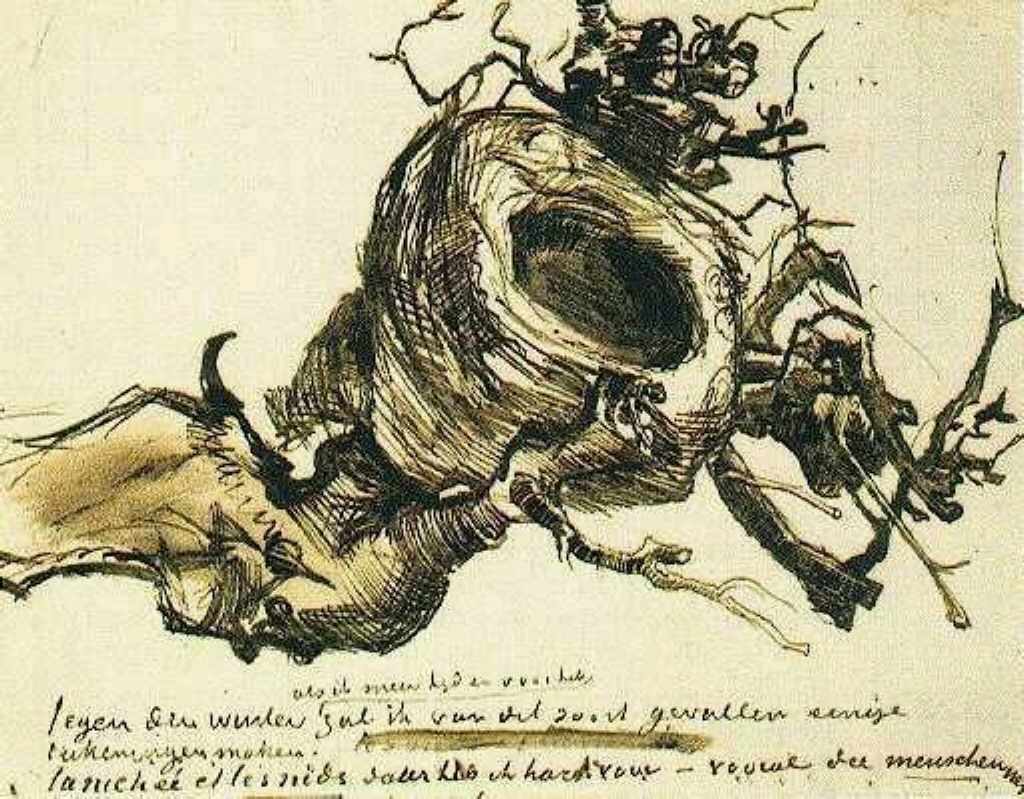 als ik meer tyd er voor heb
Tegen den winter zal ik van dit soort gevallen eenige
teekeningen maken.
La nichée et les nids daar heb ik hart voor – vooral die menschen